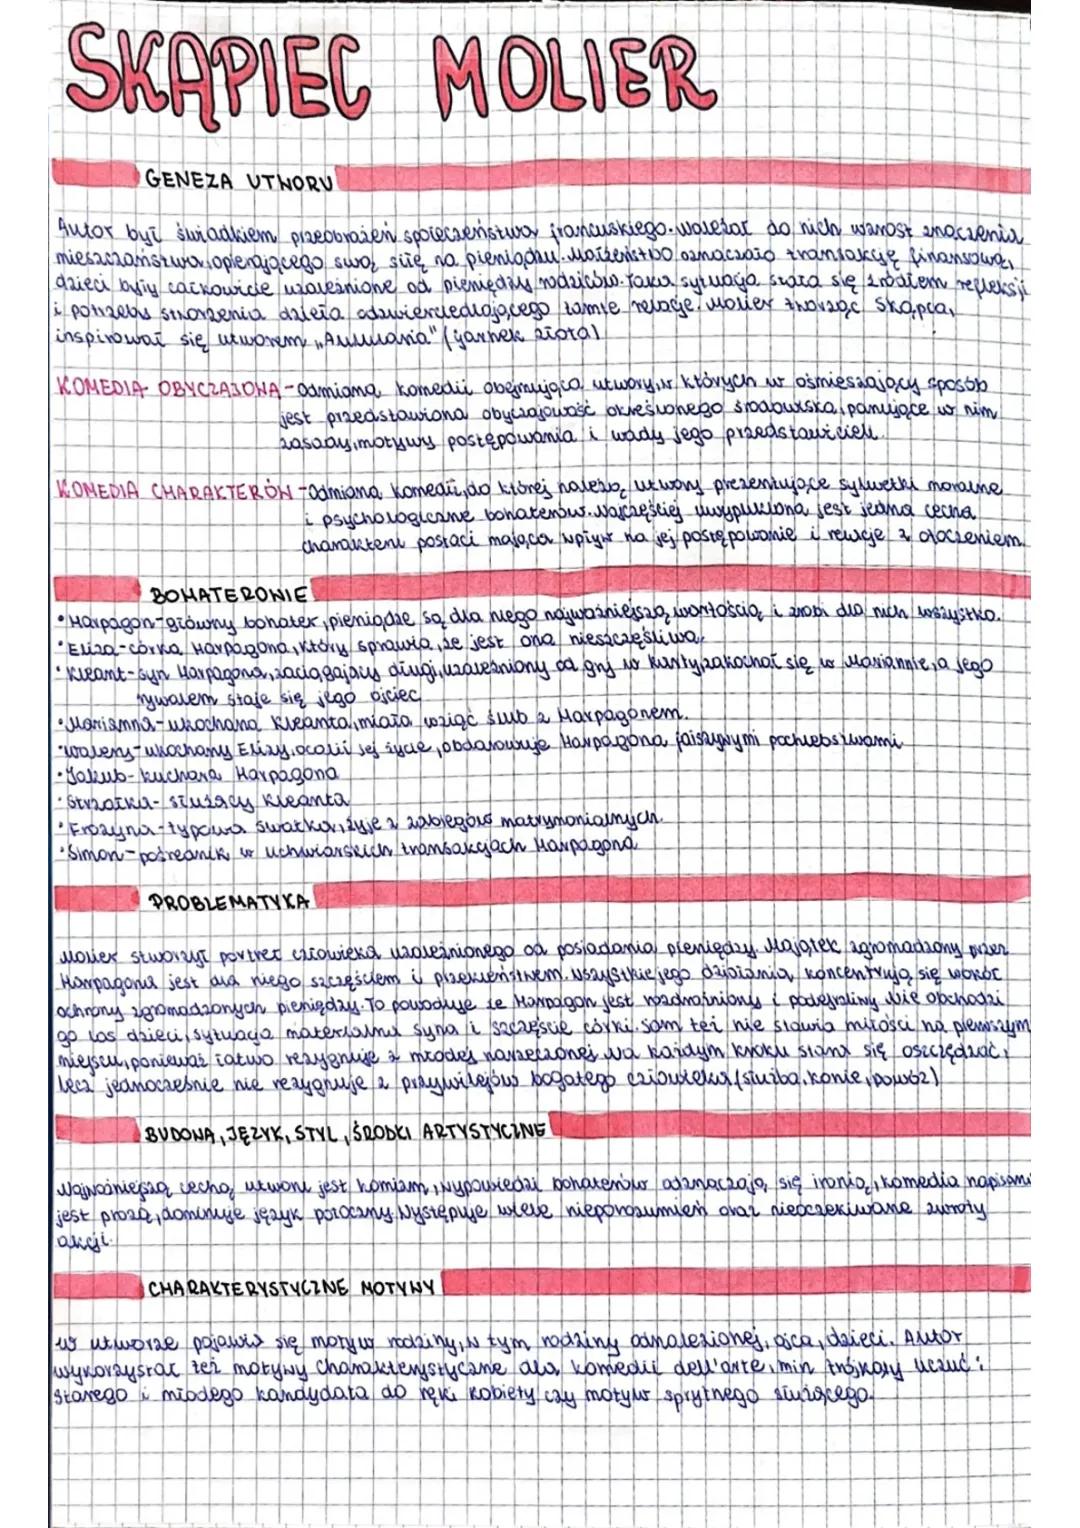 SKĄPIEC MOLIER
GENEZA UTWORU
Autor był świadkiem przeobrażeń społeczeństwa francuskiego. Należał do nich wzrost znaczenia
mieszczaństwa, opierającego swą siłę na pieniądzu. Małżeństwo oznaczało transakcję finansową,
dzieci były całkowicie uzależnione od pieniędzy rodziców. Taka sytuacja stała się źródłem refleksji
i potrzeby stworzenia dzieła odzwierciedlającego tamte relacje. Molier tworząc Skąpca,
inspirował się utworem „Aulularia" (garnek złota)
KOMEDIA OBYCZAJOWA - odmiana komedii obejmująca utwory, w których w ośmieszający sposób
jest przedstawiona obyczajowość określonego środowiska, panujące w nim
zasady, motywy postępowania i wady jego przedstawicieli.
KOMEDIA CHARAKTERÓW - Odmiana komedii, do której należą utwory prezentujące sylwetki moralne
i psychologiczne bohaterów. Najczęściej uwypuklona jest jedna cecha
charakteru postaci mająca wpływ na jej postępowanie i relacje z otoczeniem.
BOHATEROWIE
• Harpagon - główny bohater, pieniądze są dla niego najważniejszą wartością i zrobi dla nich wszystko.
• Eliza - córka Harpagona, który sprawia, że jest ona nieszczęśliwa.
• Kleant - syn Harpagona, zaciągający długi, uzależniony od gry w karty, zakochał się w Mariannie, a jego
rywalem staje się jego ojciec
• Marianna - ukochana Kleanta, miała wziąć ślub z Harpagonem.
• Walery - ukochany Elizy, ocalił jej życie, obdarowuje Harpagona fałszywymi pochlebstwami
• Jakub - kucharz Harpagona
• Strzałka - służący Kleanta
• Frozyna - typowa swatka, żyje z zabiegów matrymonialnych.
• Simon - pośrednik w lichwiarskich transakcjach Harpagona
PROBLEMATYKA
Molier stworzył portret człowieka uzależnionego od posiadania pieniędzy. Majątek zgromadzony przez
Harpagona jest dla niego szczęściem i przekleństwem. Wszystkie jego działania koncentrują się wokół
ochrony zgromadzonych pieniędzy. To powoduje że Harpagon jest rozdrażniony i podejrzliwy. Nie obchodzi
go los dzieci, sytuacja materialna syna i szczęście córki. Sam też nie stawia miłości na pierwszym
miejscu, ponieważ łatwo rezygnuje z młodej narzeczonej. Na każdym kroku stara się oszczędzać,
lecz jednocześnie nie rezygnuje z przywilejów bogatego człowieka (służba, konie, powóz)
BUDOWA, JĘZYK, STYL, ŚRODKI ARTYSTYCZNE
Najważniejszą cechą utworu jest komizm, wypowiedzi bohaterów odznaczają się ironią, komedia napisana
jest prozą, dominuje język potoczny. Występuje wiele nieporozumień oraz nieoczekiwane zwroty
akcji.
CHARAKTERYSTYCZNE MOTYWY
W utworze pojawia się motyw rodziny, w tym rodziny odnalezionej, ojca, dzieci. Autor
wykorzystał też motywy charakterystyczne dla komedii dell'arte, min trójkąty uczuć:
starego i młodego kandydata do ręki kobiety czy motyw sprytnego służącego.